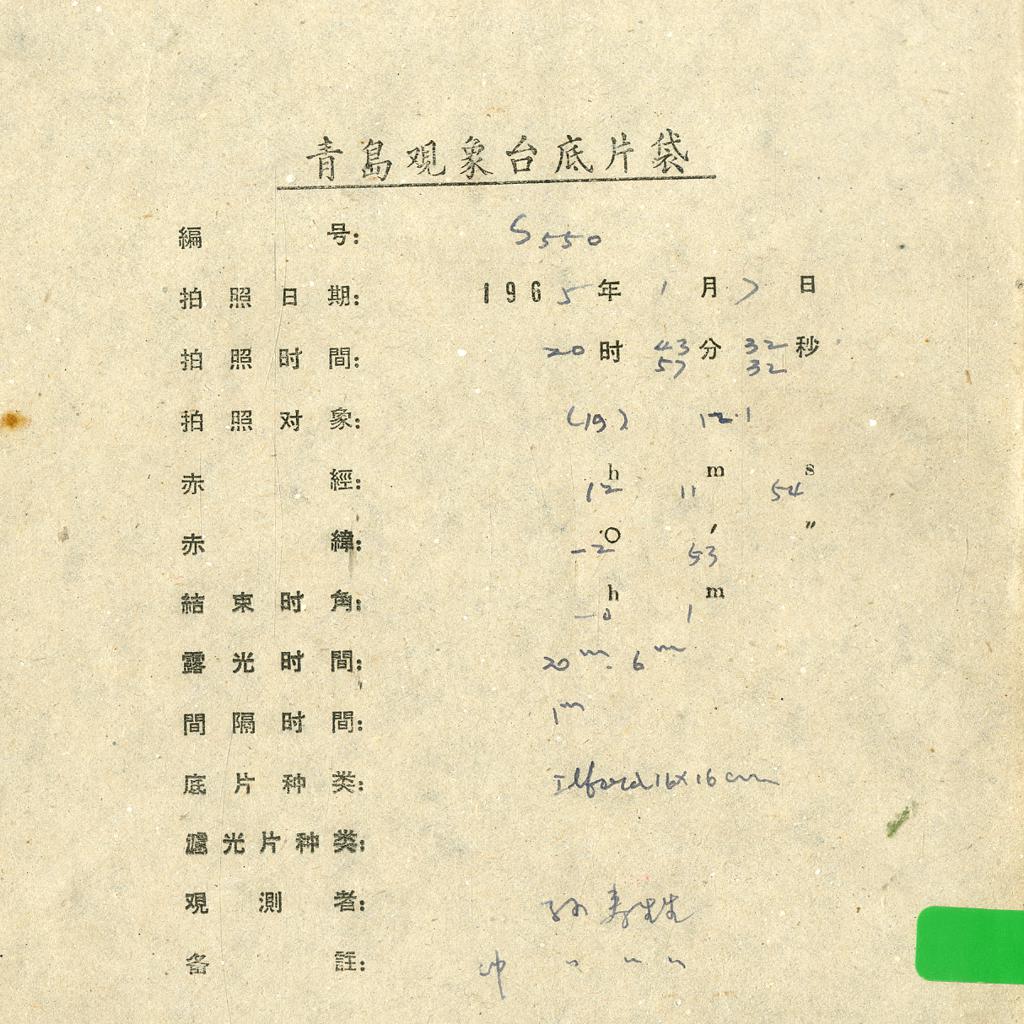 青島观象台底片袋
編号: S550
拍照日期: 1965年1月7日
拍照时間: 20时43分32秒
57 32
拍照对象: (19) 12.1
赤經: 12h 11m 54s
赤緯: -2° 53′ ″
結束时角: -0h 1m
露光时間: 20m. 6m
間隔时間: 1m
底片种类: Ilford 16×16cm
濾光片种类:
观測者: 孙寿
备註: 冲 〃 〃 〃